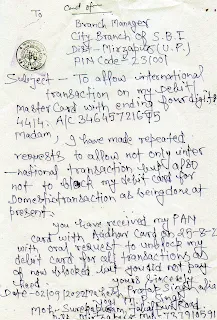 To
Card of
Branch Manager
City Branch of S.B.I
Dist- Mirzapur (U.P.)
PIN Code 231001
Subject - To allow international
transaction on my Debit
Master Card with ending four digits
4414. A/C
Madam,
I have made repeated
requests to allow not only inter
-national transaction but also
not to block my debit card for
Domestic transaction as being done at
present.
you have received my PAN
card with Aadhar Card on 25-8-2
with oral request to unblock my
debit card for all transactions as
of now blocked but you did not pay
heed. yours sincerely
Date
Moh-